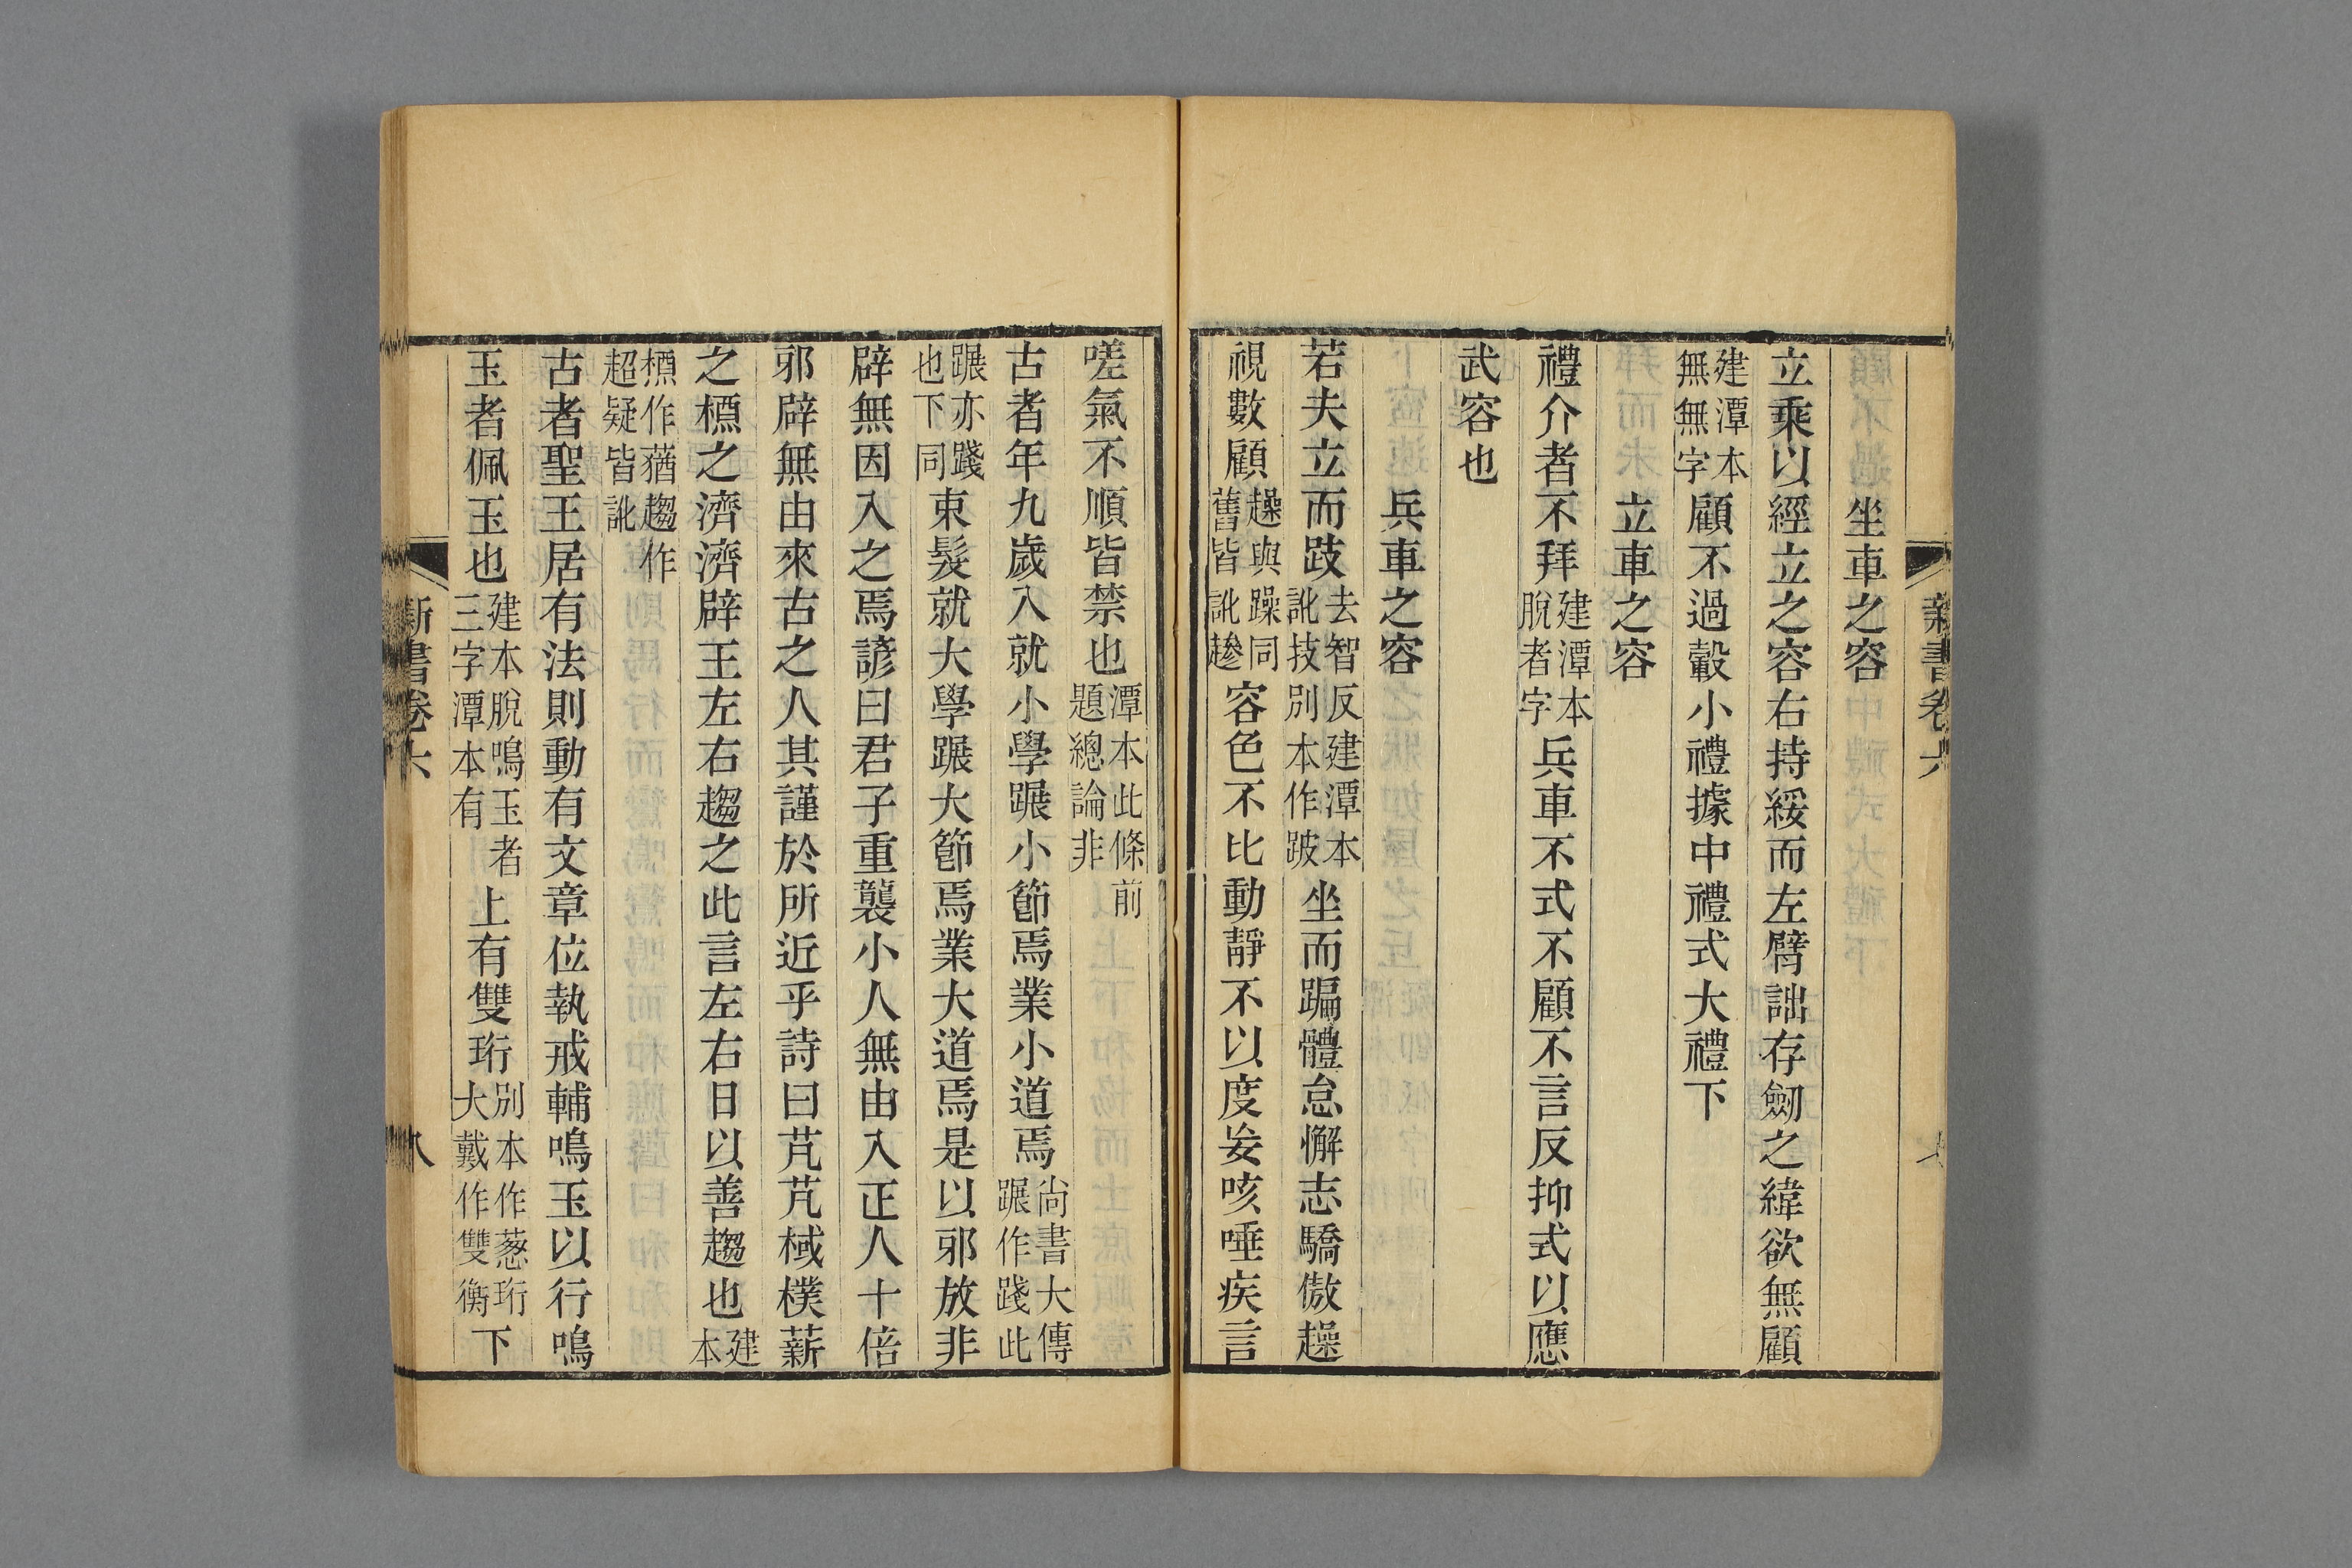 新書卷六
坐車之容
立乘以經立之容右持綏而左臂詘存劒之緯欲無顧
建潭本無無字顧不過轂小禮據中禮式大禮下
立車之容
禮介者不拜建潭本脫者字兵車不式不顧不言反抑式以應
武容也
兵車之容
若夫立而跂去智反建潭本訛技別本作跛坐而蹁體怠懈志驕傲趮
視數顧趮與躁同舊皆訛趁容色不比動靜不以度妄咳唾疾言
嗟氣不順皆禁也潭本此條前題總論非
古者年九歲入就小學蹍小節焉業小道焉尚書大傳蹍作踐此
蹍亦踐也下同束髮就大學蹍大節焉業大道焉是以邪放非
辟無因入之焉諺曰君子重襲小人無由入正人十倍
邪辟無由來古之人其謹於所近乎詩曰芃芃棫樸薪
之槱之濟濟辟王左右趨之此言左右日以善趨也建本
槱作蕕趨作超疑皆訛
古者聖王居有法則動有文章位執戒輔鳴玉以行鳴
玉者佩玉也建本脫鳴玉者三字潭本有上有雙珩別本作蔥珩大戴作雙衡下
新書卷六
八